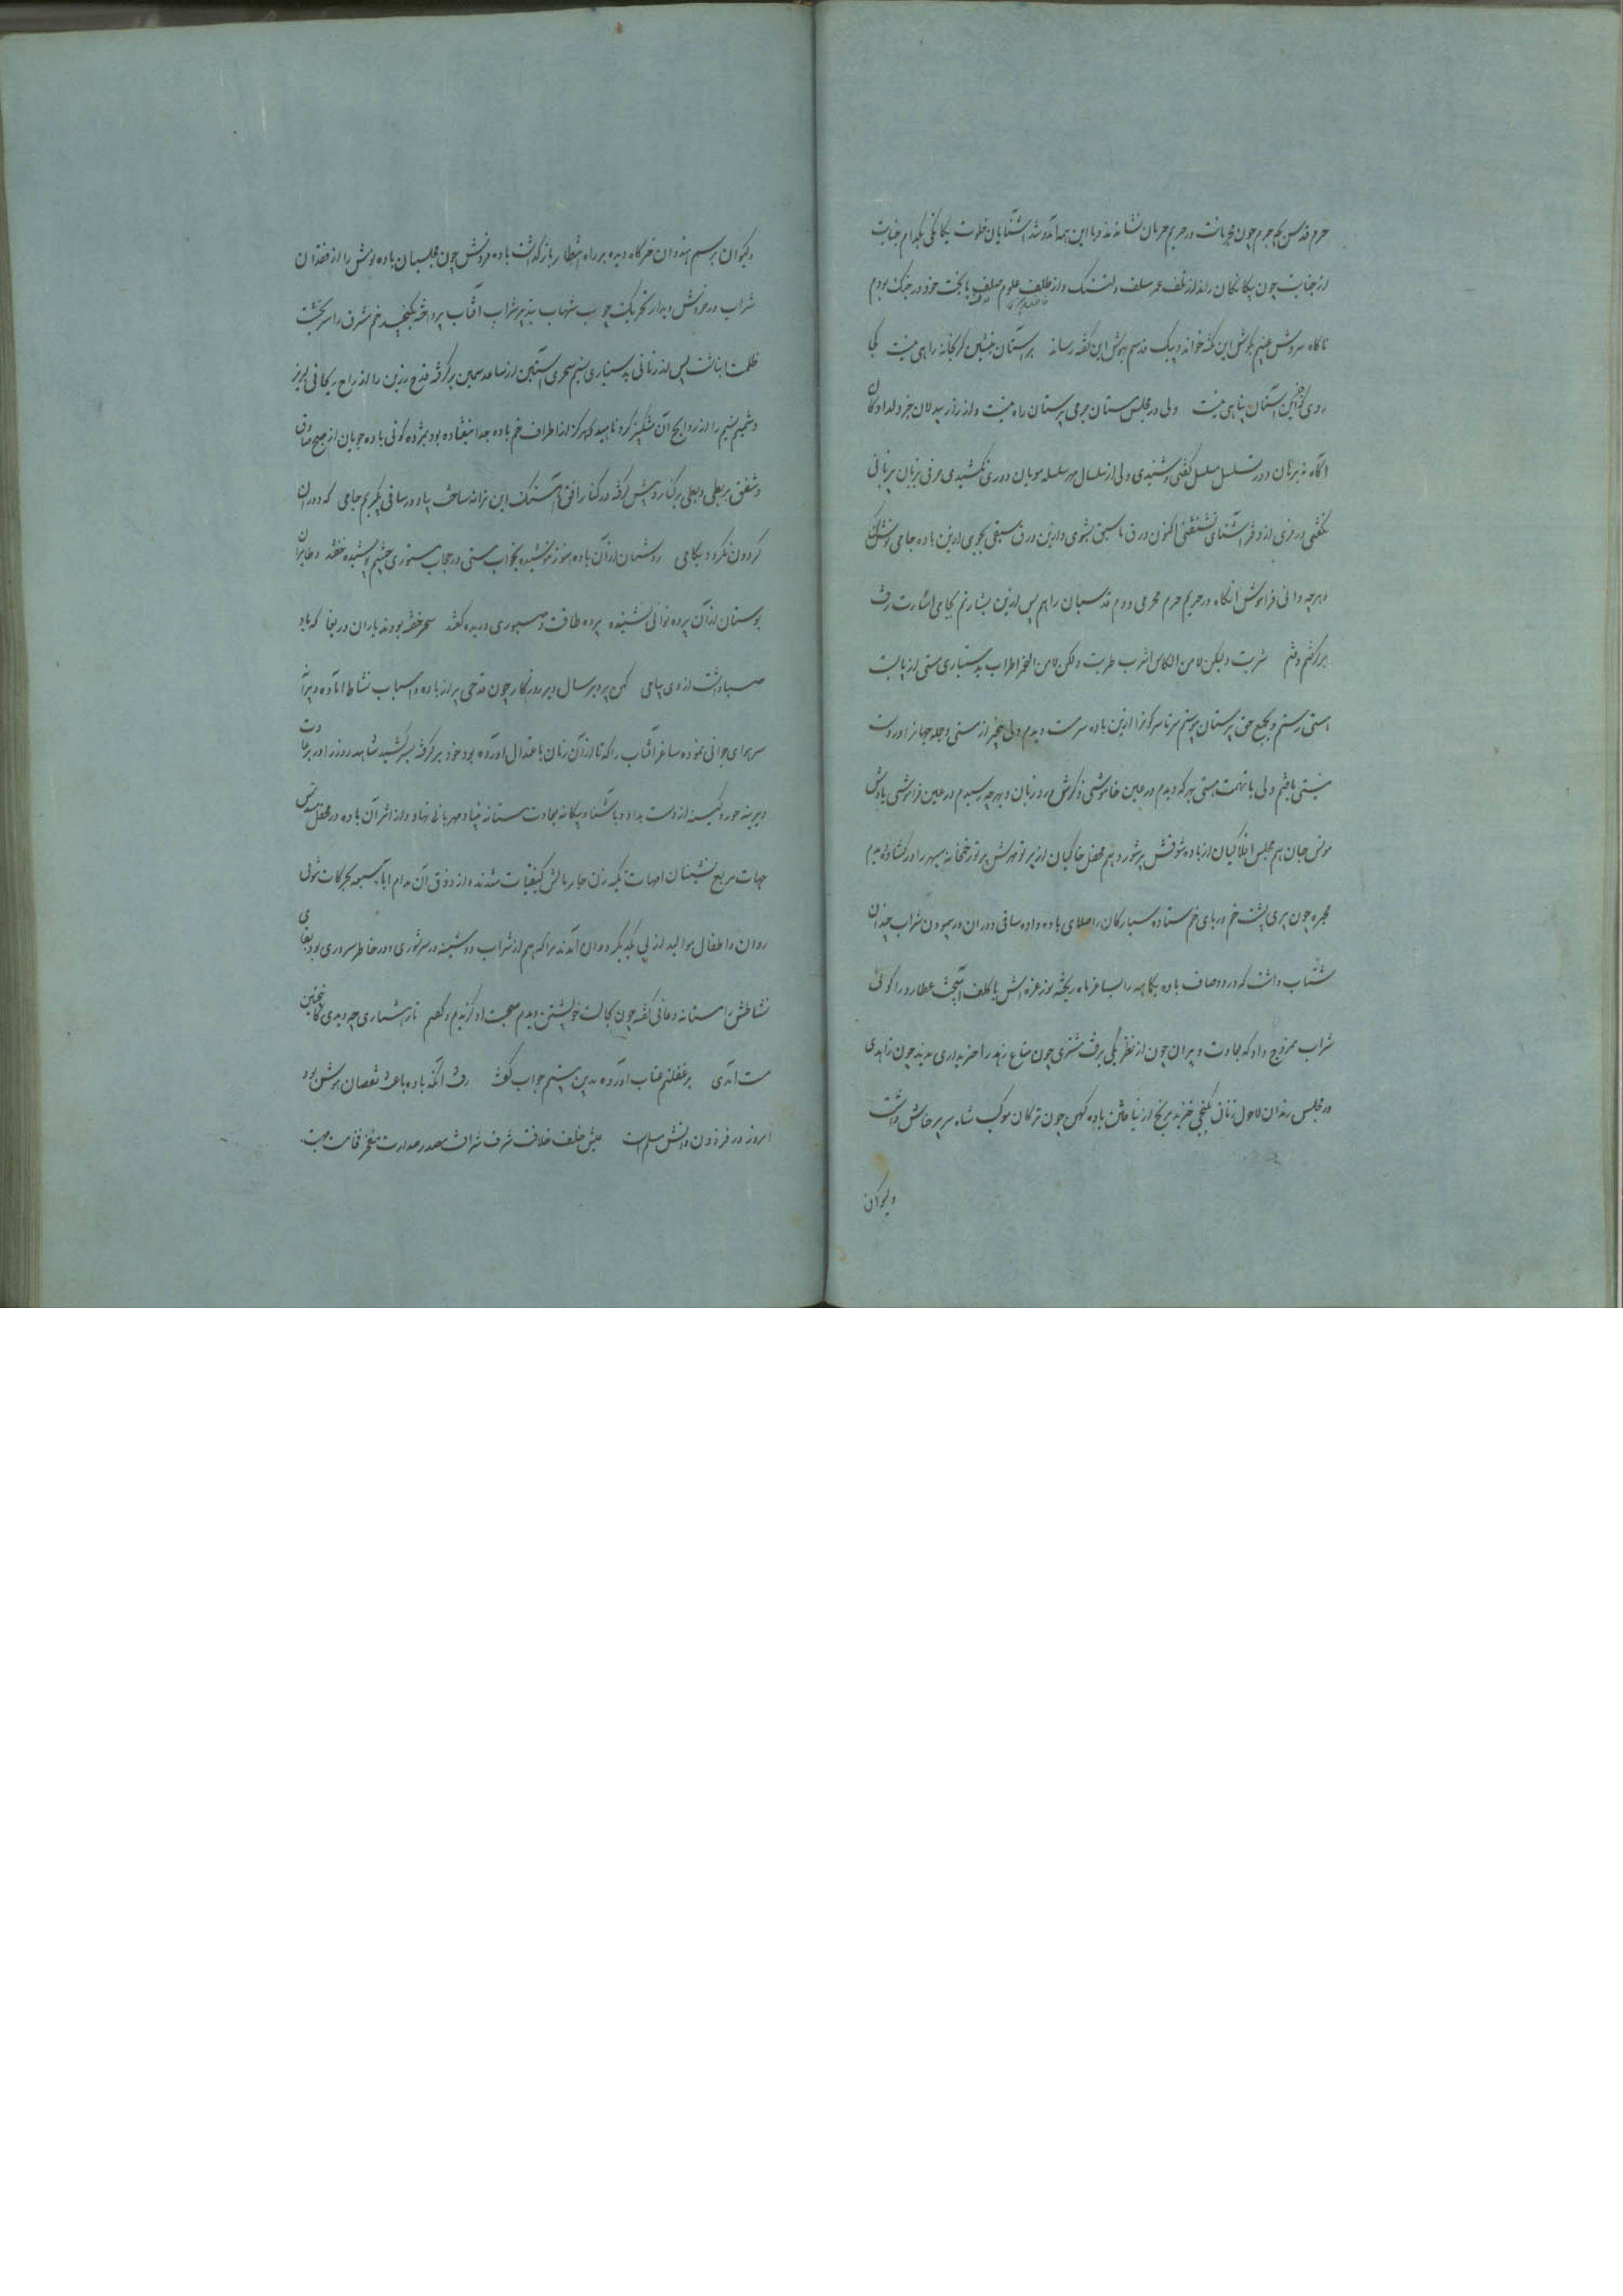 حرم قدسن بچه جرم چون مجرمانت در حریم حرمان نشاندند و با این همه آمد و شد آشنایان خلوت یگانگی بکدام جنایت
از جنابت چون بیگانگان راند از تلف عمر سلف دلتنگ و از علوم با بخت خود در جنگ بودم
ناگاه سروش غیبم بگوش این نکته خواند و پیک قدسم بهوش این گفته رساند بر آستان بنشین گر بخانه راهی نیست که
روی گزین آستان پناهی نیست ولی در مجلس مستان جز می پرستان راه نیست و از راز بیدلان جز دلدادگان
آگاه نه برهان دور تسلسل مسلسل گفتی و شنیدی ولی از سلسال مهر سلسله مویان دوری نکشیدی حرفی بزبان بی زبانی
نگفتی و رمزی از دفتر آشنائی نشنفتی اکنون ورق ما سبق بشوی و ازین ورق سبقی بجوی ازین باده جامی نوش کن
و هرچه دانی فراموش آنگاه در حریم حرم محرمی و دم قدسیان را همدم پس ازین بشارتم بجامی اشارت رفت
برگرفتم و گفتم شربت ولیکن لا من الکاس اشرب طربت ولکن لا من الخمر اطراب بدستیاری مستی از پا بست
هستی رستم و بجمع حق پرستان پیوستم سرتاسر کونرا ازین باده سرمست دیدم ولی بیخبر از مستی و جمله جهانرا در دست
نیستی یافتم ولی با تهمت هستی بهر که دیدم در عین خاموشی ذکرش ورد زبان و بهر چه رسیدم در عین فراموشی یادش
مونس جان هم مجلس افلاکیان از باده شوقش پرشور و هم محفل خاکیان از پرتو مهرش پر نور خمخانه سپهر را در گشاده دیدم
مجره چون پیری پشت خم در پای خم ستاده سیارگان را صلای باده داده ساقی دوران در پیمودن شراب چندان
شتاب داشت که درد و صاف باده یگاهه را بساغر ماه ریخته بود غره اش با کلف آمیخت عطارد را گوئی
شراب ممزوج داد که بعادت دبیران چون از نظر یکی برفت مشتری چون متاع زهد را خریداری ندید چون زاهدی
در مجلس رندان لاحول زنان بکنجی خزید مریخ از نیافتن باده کهن چون ترکان موکب شاه سر پرخاش داشت
و کیوان
و کیوان برسم هندوان خرگاه دیده بر راه انتظار باز گذاشت باده فروش چون مجلسیان باده نوش را از فقدان
شراب در خروش دید از تحریک چوب شهاب بتدبیر شراب آفتاب پرداخته بکنجید خم مشرق را سر بخشت
ظلمت انباشت پس از زمانی بدستیاری نسیم سحری آستین از ساعد سیمین برگرفته قدح زرین را از راح ریحانی لبریز
و شمیم نسیم را از روایح آن مشکبیز کرد ناهید که هرگز از اطراف خم باده جدا نیفتاده بود مژده گوئی باده جویان از صبح صادق
و شفق بربطی و بطی بر کنار و پیش گرفته در کنار افق آهنگ این ترانه ساخت بیا و در ساقی بگیریم جامی که دوران
گردون نگردد بکامی روشنان از آن باده هنوز ننوشیده بخواب مستی در حجاب مستوری چشم پوشیده خفتند و طایران
بوستان از آن پرده نوائی نشنیده پرده طاقت و صبوری دریده گفتند سحر خفته بودند یاران دریغا که باد
صبا داشت از وی پیامی کهن پیر دیر سال دیر روزگار چون قدحی پر از باده و اسباب نشاط آماده دید
سر بهوای جوانی نموده ساغر آفتاب را که تا از آن زمان باعتدال آورده بود خود برگرفته بسر کشید شاهد روز را در بر عادت
دیرینه جور و کینه از دست بداد و با آشنا و بیگانه بعادت مستانه بنیاد مهربانی نهاد و از اثر آن باده در محفل مسدس
جهات مربع نشینان امهات تکیه زن چار بالش کیفیات شدند و از ذوق آن مدام اباء سبعه بحرکات شوقی
روان و اطفال موالید از پی یکدیگر دوان آمدند مرا که هم از شراب دوشینه در سر شوری و در خاطر سروری بود بقای
نشاطش را مستانه دعائی گفته چون بحالت خویشتن دیدم صحبت او گزیدم و گفتم تا ز هشیاری چه دیدی کاینچنین
مست آمدی بر غفلتم عتاب آورده بدین بیتم جواب گفت رفت آنکه باده باعث نقصان هوش بود
امروز در فزودن دانش مسلم است خلف خلافت شرف شرافت صدر صدارت مفخر